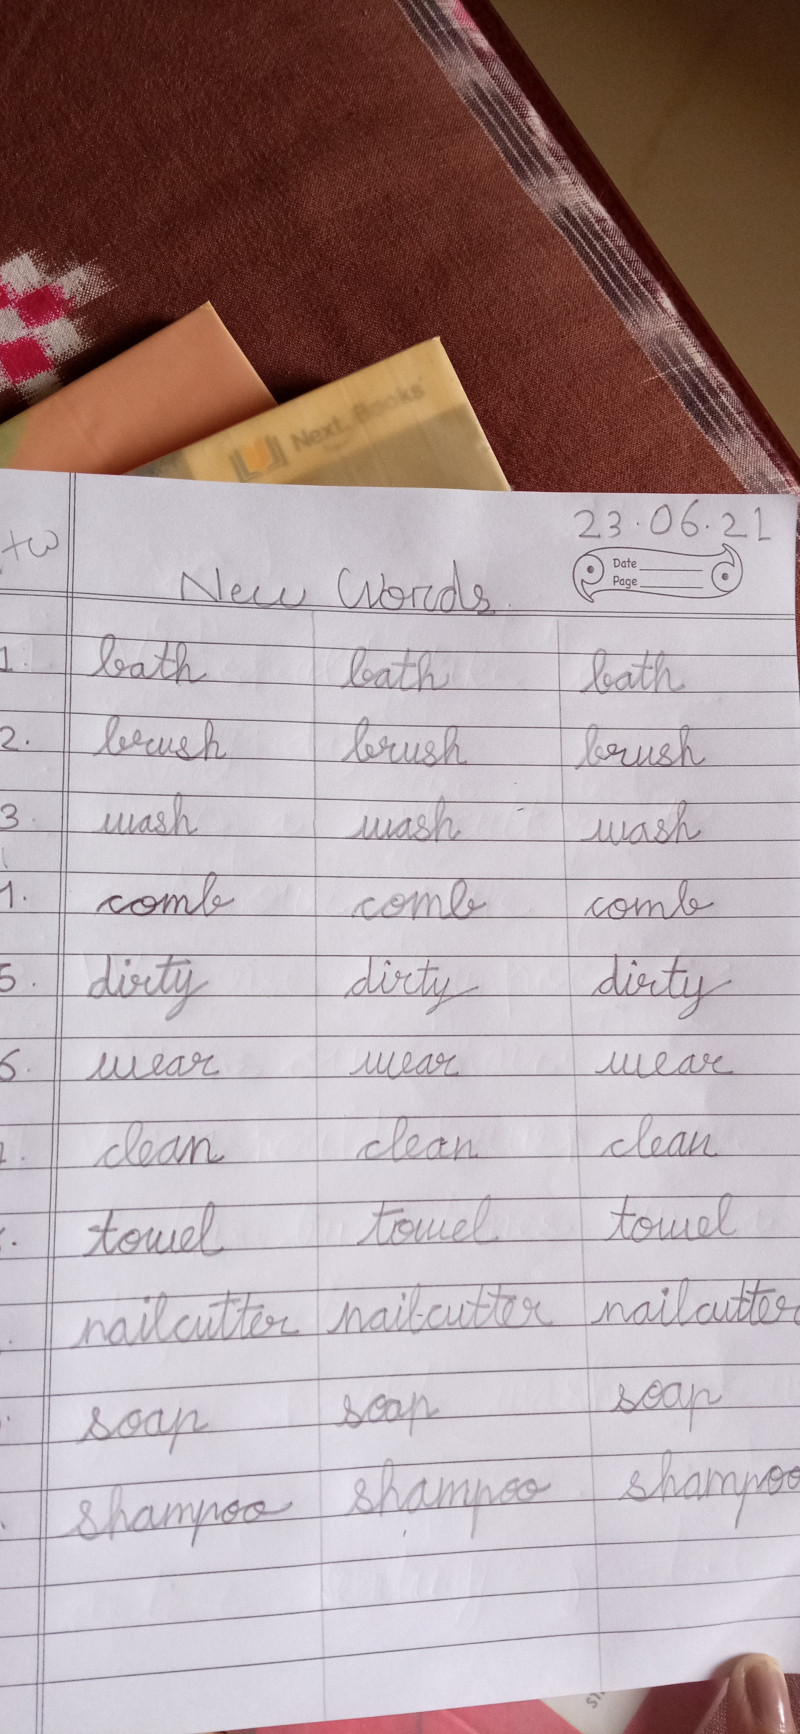 Next Books
23.06.21
Date
Page
New Words.
1. bath bath bath
2. brush brush brush
3. wash wash wash
comb comb comb
5. dirty dirty dirty
6. wear wear wear
clean clean clean
towel towel towel
nailcutter nailcutter nailcutter
soap soap soap
shampoo shampoo shampoo